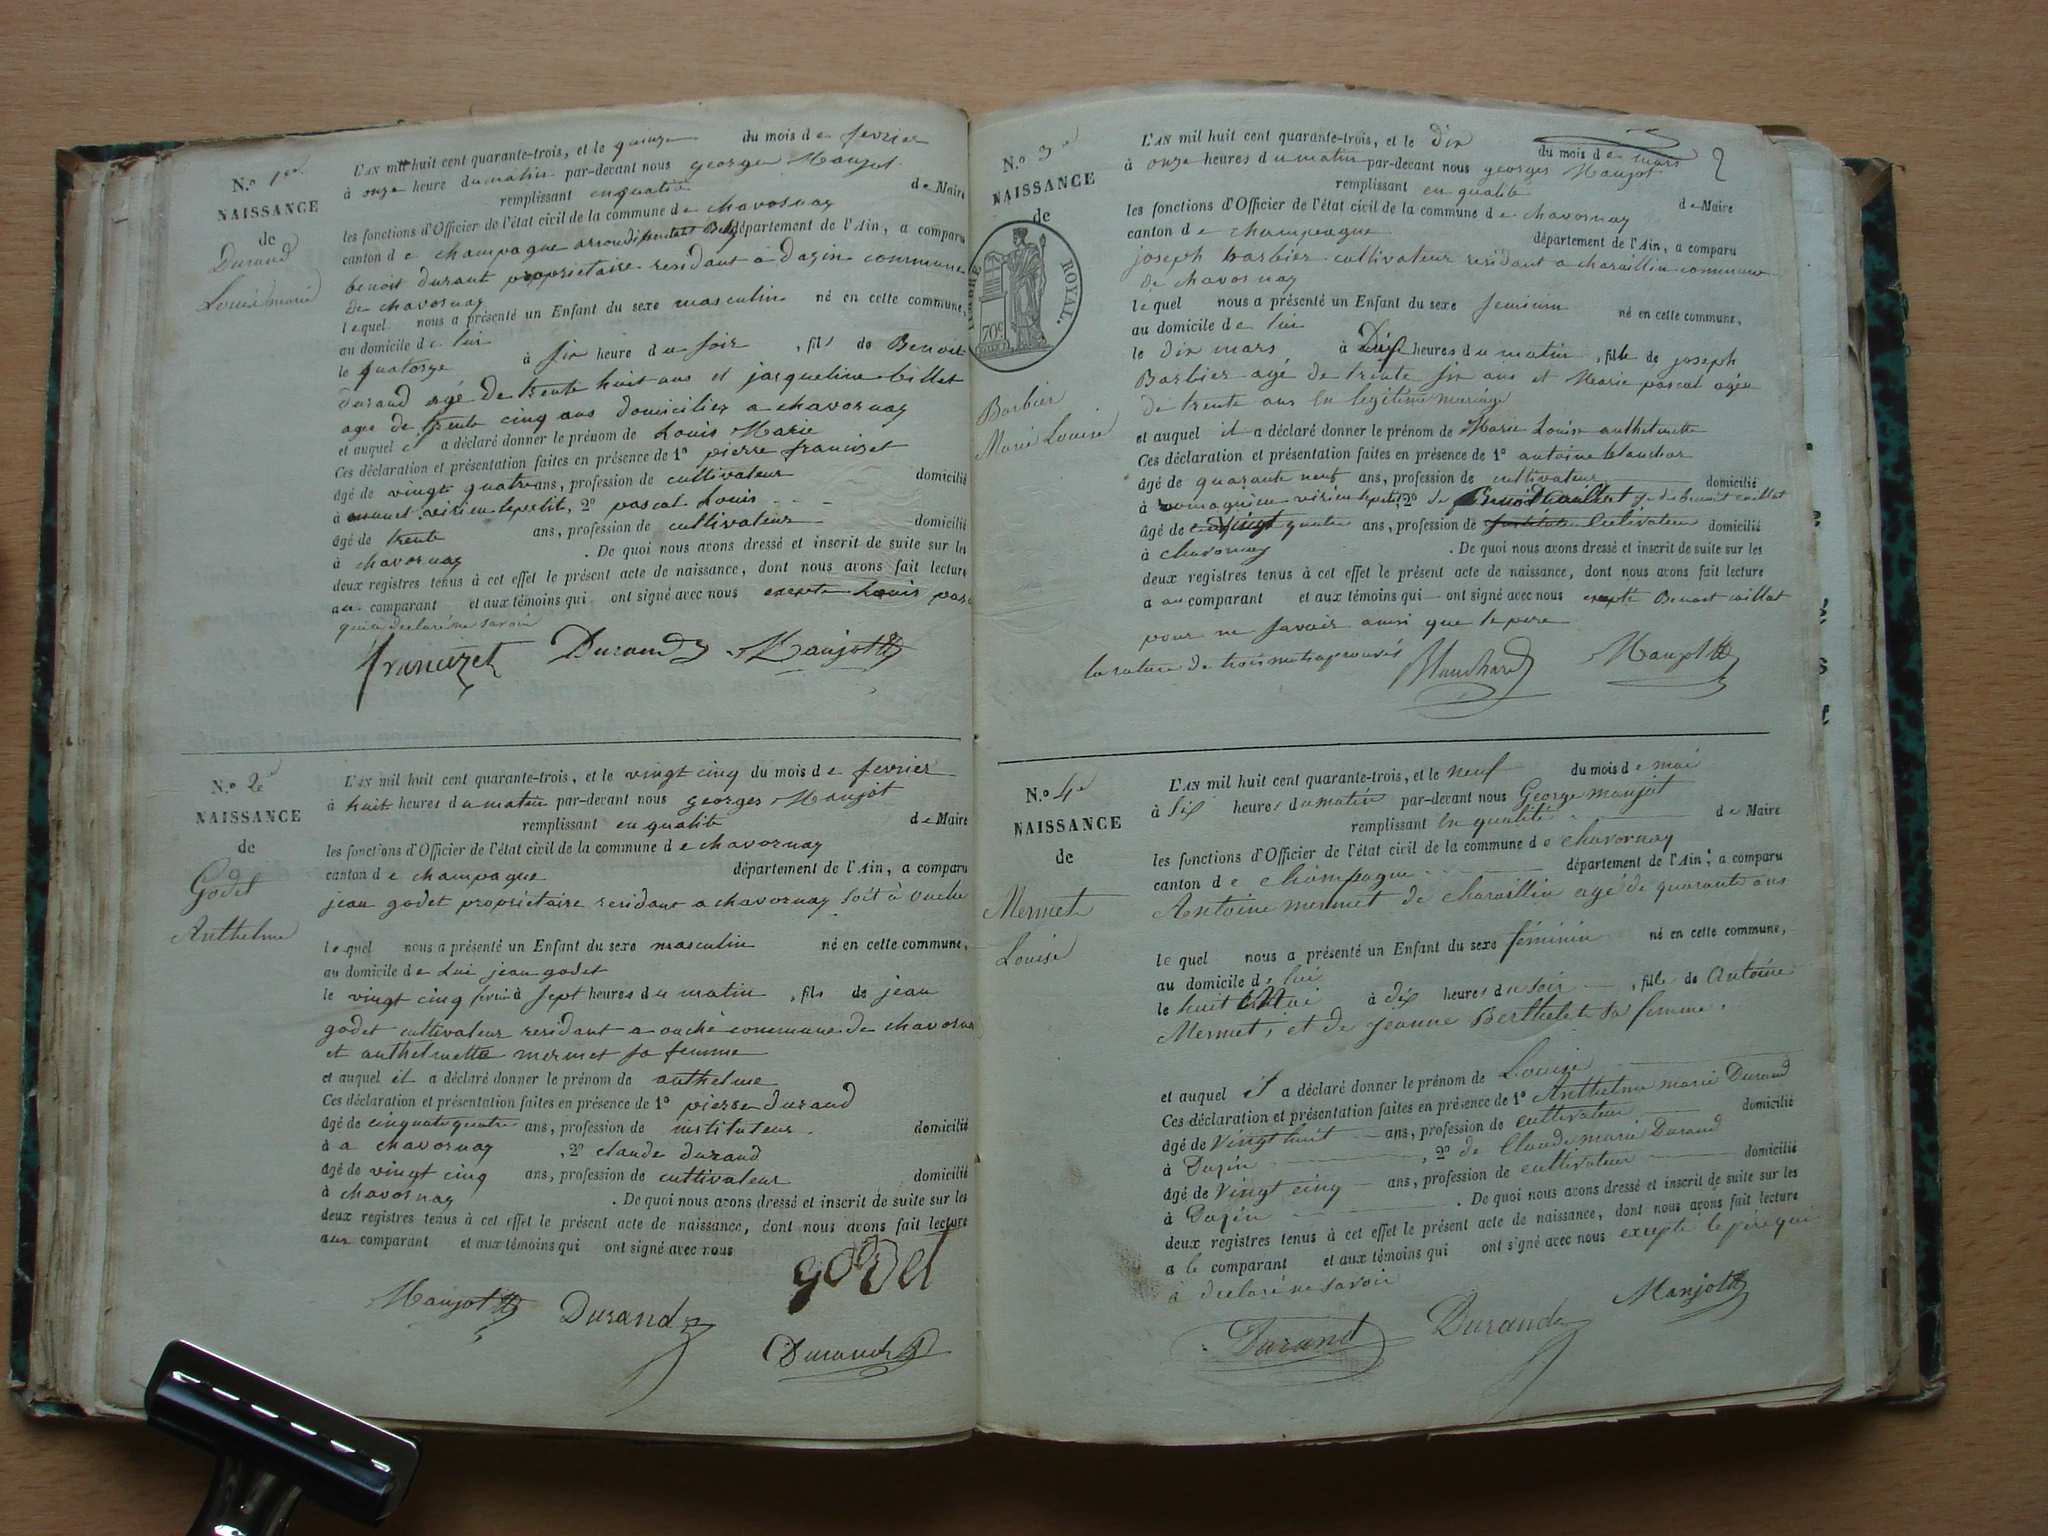 N.o 1er
NAISSANCE
de
Durand
Louis marie
L'AN mil huit cent quarante-trois, et le quinze du mois de fevrier
à onze heure du matin par-devant nous georges Maujot
remplissant en qualité de Maire
les fonctions d'Officier de l'état civil de la commune de chavornay
canton de champagne arrondissement Belley département de l'Ain, a comparu
benoit durant propriétaire residant a dazin commune
de chavornay
lequel nous a présenté un Enfant du sexe masculin né en cette commune,
au domicile de lui
le quatorze à six heure du soir, fils de Benoit
durand agé de trente huit ans et jacqueline billet
agee de trente cinq ans domiciliez a chavornay
et auquel il a déclaré donner le prénom de Louis Marie
Ces déclaration et présentation faites en présence de 1o pierre francizet
âgé de vingt quatre ans, profession de cultivateur domicilié
à virieu le petit, 2o pascal Louis
âgé de trente ans, profession de cultivateur domicilié
à chavornay . De quoi nous avons dressé et inscrit de suite sur les
deux registres tenus à cet effet le présent acte de naissance, dont nous avons fait lecture
au comparant et aux témoins qui ont signé avec nous excepte Louis
qui a declaré ne savoir
francizet Durand Maujot
N.o 2e
NAISSANCE
de
Godet
Anthelme
L'AN mil huit cent quarante-trois, et le vingt cinq du mois de fevrier
à huit heures du matin par-devant nous georges Maujot
remplissant en qualité de Maire
les fonctions d'Officier de l'état civil de la commune de chavornay
canton de champagne département de l'Ain, a comparu
jean godet propriétaire residant a chavornay soit à ouche
lequel nous a présenté un Enfant du sexe masculin né en cette commune,
au domicile de Lui jean godet
le vingt cinq à sept heures du matin, fils de jean
godet cultivateur residant a ouche commune de chavornay
et anthelmette mermet sa femme
et auquel il a déclaré donner le prénom de anthelme
Ces déclaration et présentation faites en présence de 1o pierre durand
âgé de cinquate quatre ans, profession de instituteur domicilié
à a chavornay, 2o claude durand
âgé de vingt cinq ans, profession de cultivateur domicilié
à chavornay . De quoi nous avons dressé et inscrit de suite sur les
deux registres tenus à cet effet le présent acte de naissance, dont nous avons fait lecture
aux comparant et aux témoins qui ont signé avec nous
godet
Maujot Durand
Durand
2
N.o 3e
NAISSANCE
de
TIMBRE ROYAL.
70c
Barbier
Marie Louise
L'AN mil huit cent quarante-trois, et le dix du mois de mars
à onze heures du matin par-devant nous georges Maujot
remplissant en qualité de Maire
les fonctions d'Officier de l'état civil de la commune de chavornay
canton de champagne département de l'Ain, a comparu
joseph barbier cultivateur residant a charaillin commune
de chavornay
lequel nous a présenté un Enfant du sexe feminin né en cette commune,
au domicile de lui
le dix mars à Dix heures du matin, fille de joseph
Barbier agé de trente six ans et Marie pascal agée
de trente ans en legitime mariage
et auquel il a déclaré donner le prénom de Marie Louise anthelmette
Ces déclaration et présentation faites en présence de 1o antoine blanchar
âgé de quarante neuf ans, profession de cultivateur domicilié
à romagnieu virieu le petit, 2o de benoit caillat
âgé de vingt quatre ans, profession de cultivateur domicilié
à chavornay . De quoi nous avons dressé et inscrit de suite sur les
deux registres tenus à cet effet le présent acte de naissance, dont nous avons fait lecture
a au comparant et aux témoins qui ont signé avec nous excepté Benoit caillat
pour ne savoir ainsi que le pere
la rature de trois mots aprouvés Blanchard Maujot
N.o 4e
NAISSANCE
de
Mermet
Louise
L'AN mil huit cent quarante-trois, et le neuf du mois de mai
à six heures du matin par-devant nous George maujot
remplissant en qualité de Maire
les fonctions d'Officier de l'état civil de la commune de chavornay
canton de champagne département de l'Ain, a comparu
Antoine mermet de charaillin agé de quarante ans
lequel nous a présenté un Enfant du sexe féminin né en cette commune,
au domicile de lui
le huit Mai à dix heures du soir, fille de Antoine
Mermet, et de Jeanne Berthelet sa femme.
et auquel il a déclaré donner le prénom de Louise
Ces déclaration et présentation faites en présence de 1o Anthelme marie Durand
âgé de vingt huit ans, profession de cultivateur domicilié
à Dazin, 2o de Claude marie Durand
âgé de vingt cinq ans, profession de cultivateur domicilié
à Dazin . De quoi nous avons dressé et inscrit de suite sur les
deux registres tenus à cet effet le présent acte de naissance, dont nous avons fait lecture
a le comparant et aux témoins qui ont signé avec nous excepté le père qui
à declaré ne savoir
Durand Durand Manjot